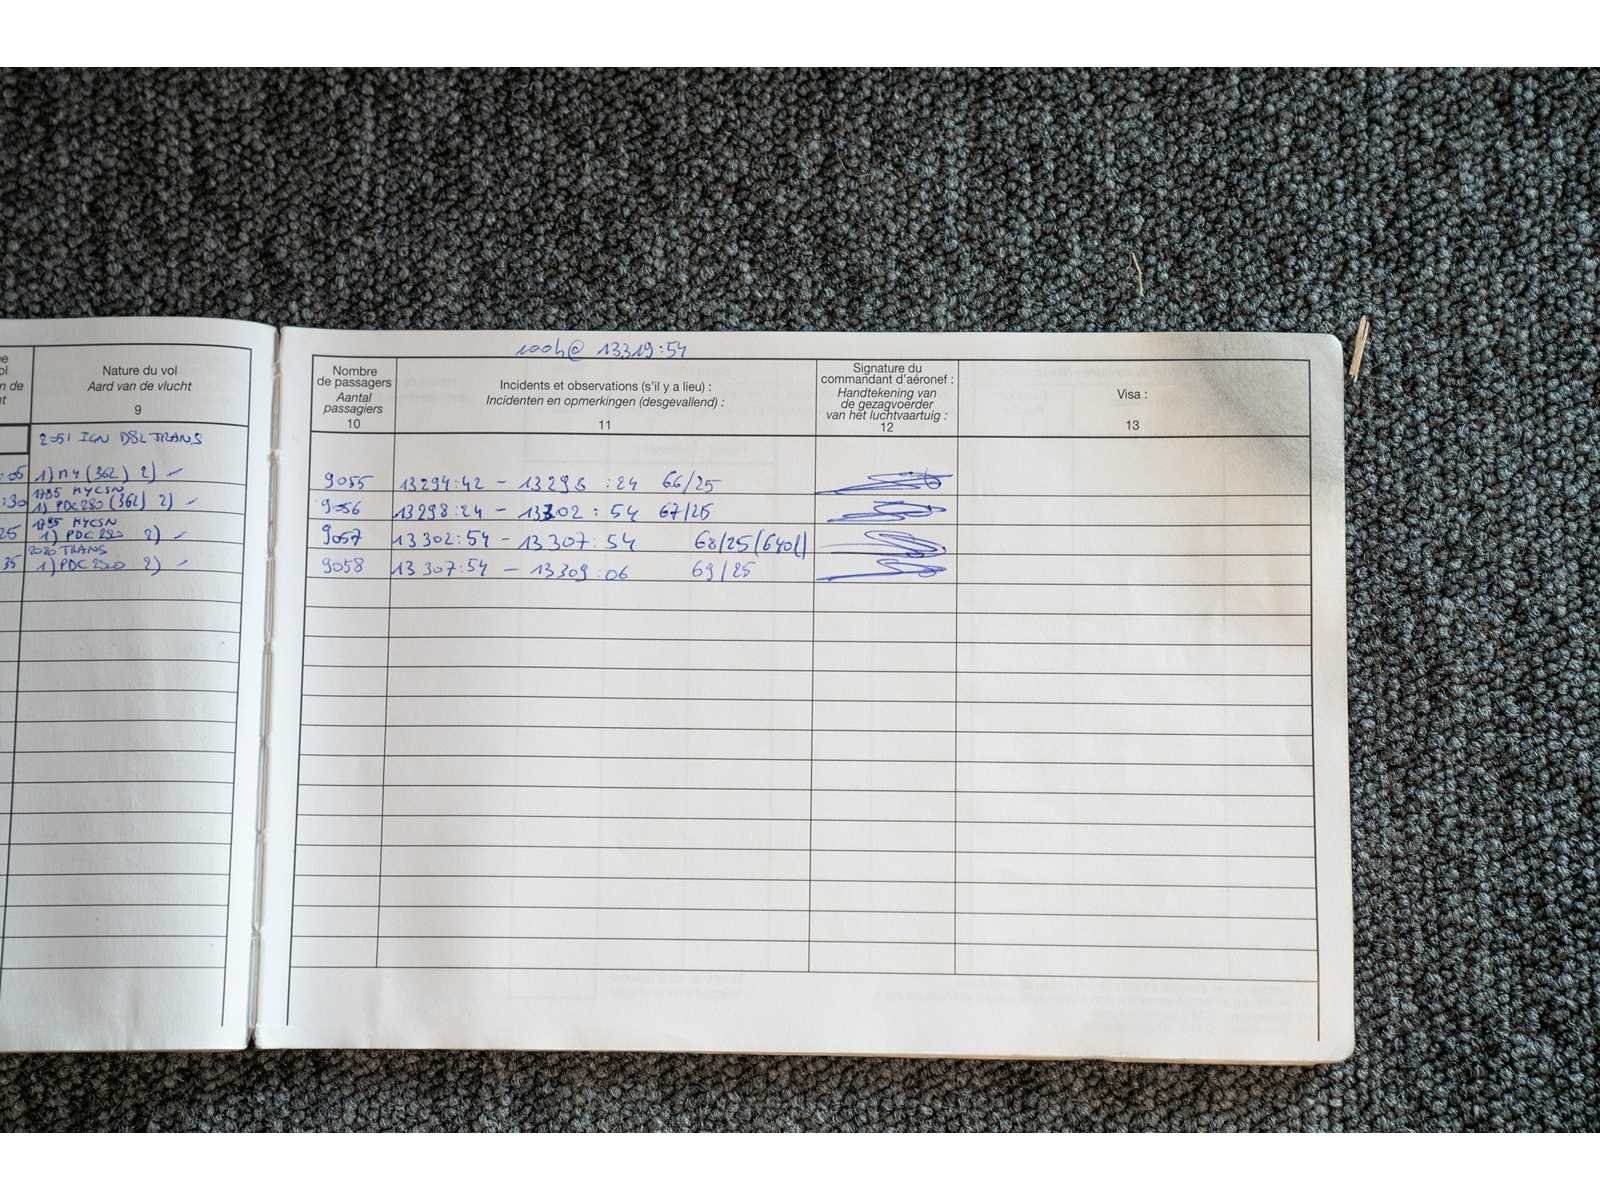 Nature du vol
Aard van de vlucht
9
n de
2051 IGN DSL TRANS
:05 1) M4 (362) 2) ✓
1795 MYCSN
:30 1) PDC 250 (362) 2) ✓
1795 MYCSN
25 1) PDC 250 2) ✓
2020 TRANS
35 1) PDC 250 2) ✓
100h@ 13319:54
Nombre
de passagers
Aantal
passagiers
10
Incidents et observations (s'il y a lieu) :
Incidenten en opmerkingen (desgevallend) :
11
Signature du
commandant d'aéronef :
Handtekening van
de gezagvoerder
van het luchtvaartuig :
12
Visa :
13
9055 13294:42 - 13298 :24 66/25
9056 13298:24 - 13302 : 54 67/25
9057 13302:54 - 13307:54 68/25 (640l)
9058 13307:54 - 13309:06 69/25